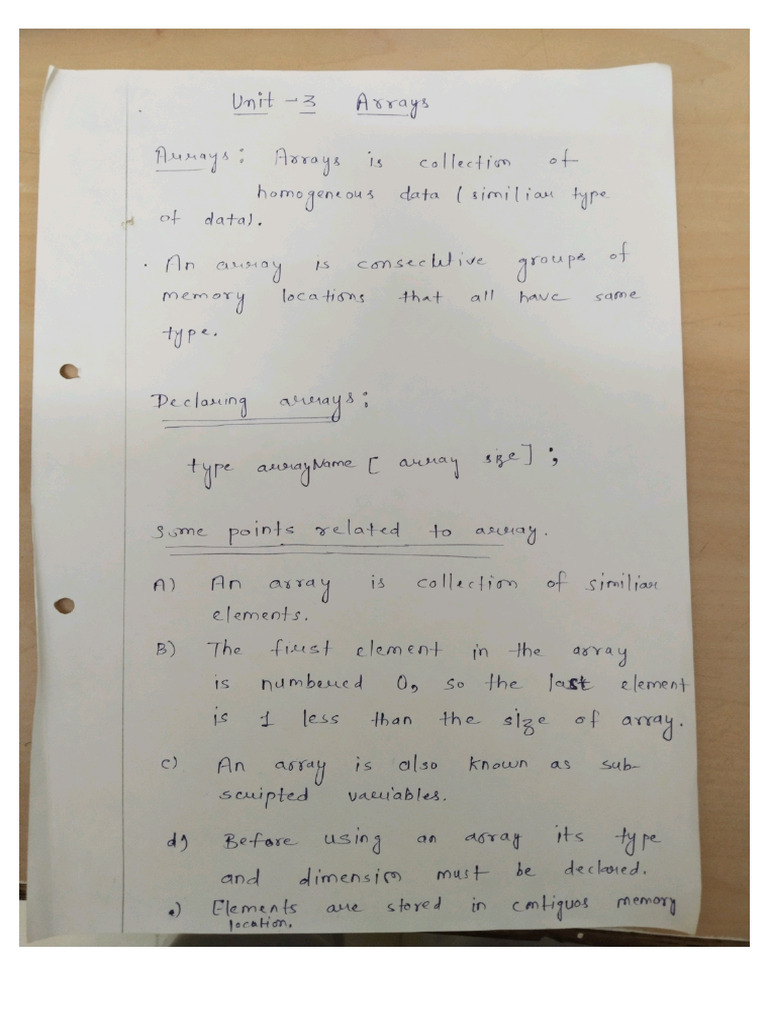 Unit - 3 Arrays
Arrays: Arrays is collection of
homogeneous data (similiar type
of data).
. An array is consecutive groups of
memory locations that all have same
type.
Declaring arrays:
type arrayName [ array size] ;
Some points related to array.
A) An array is collection of similiar
elements.
B) The first element in the array
is numbered 0, so the last element
is 1 less than the size of array.
c) An array is also known as sub-
scripted variables.
d) Before using an array its type
and dimension must be declared.
•) Elements are stored in contiguos memory
location.